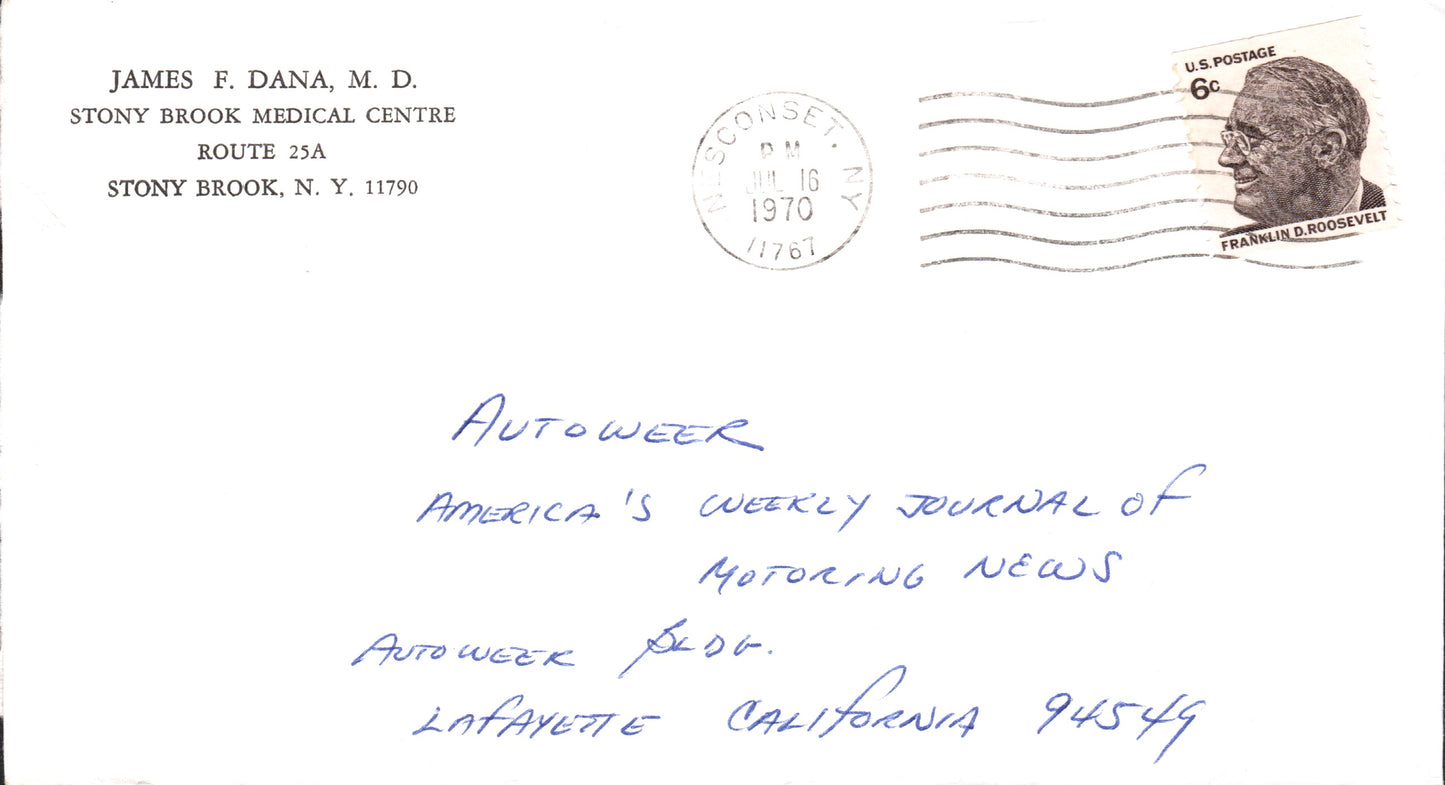 JAMES F. DANA, M. D.
STONY BROOK MEDICAL CENTRE
ROUTE 25A
STONY BROOK, N. Y. 11790
NESCONSET, NY
PM
JUL 16
1970
11767
U.S. POSTAGE
6c
FRANKLIN D. ROOSEVELT
AUTOWEEK
AMERICA'S WEEKLY JOURNAL OF
MOTORING NEWS
AUTOWEEK BLDG.
LAFAYETTE CALIFORNIA 94549